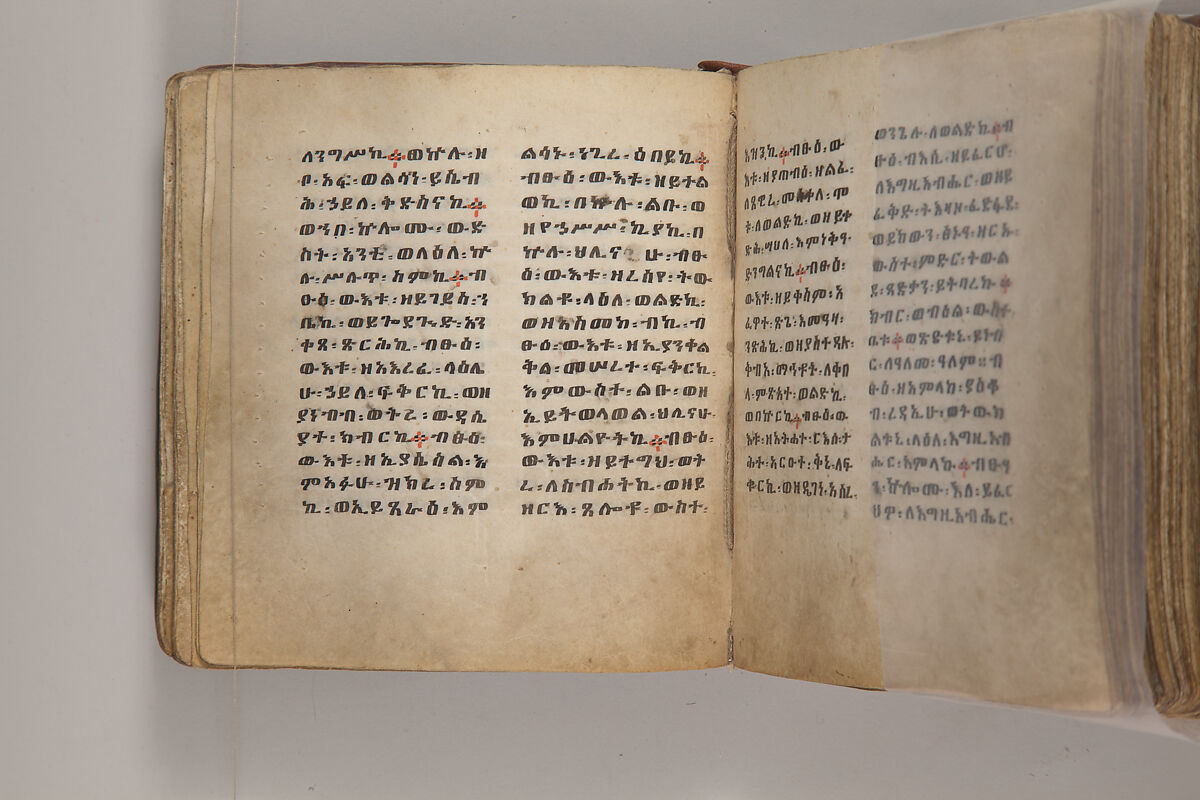 ለንግሥኪ፨ወኵሉ፡ዘ
ቦ፡አፍ፡ወልሳነ፡ይሴብ
ሕ፡ኃይለ፡ቅድስናኪ፨
ወንበ፡ኵሎሙ፡ውድ
ስት፡አንቲ፡ወለዕለ፡ኵ
ሉ፡ሥሉጥ፡ስምኪ፨ብ
ፁዕ፡ውእቱ፡ዘይገይስ፡ን
ቤኪ፡ወይጐያጕድ፡አን
ቀጸ፡ጽርሕኪ፡ብፁዕ፡
ውእቱ፡ዘአእረፈ፡ላዕሌ
ሁ፡ኃይለ፡ፍቅርኪ፡ወዘ
ያነብብ፡ወትረ፡ውዳሴ
ያተ፡ክብርኪ፨ብፁዕ፡
ውእቱ፡ዘኢያሴስል፡እ
ምአፉሁ፡ዝክረ፡ስም
ኪ፡ወኢይጼራዕ፡እም
ልሳኑ፡ነጊረ፡ዕበይኪ፨
ብፁዕ፡ውእቱ፡ዘይተል
ወኪ፡በኵሉ፡ልቡ፡ወ
ዘየኃሥሥ፡ኪያኪ፡በ
ኵሉ፡ህሊና ሁ፡ብፁ
ዕ፡ውእቱ፡ዘረሰየ፡ትው
ክልቶ፡ላዕለ፡ወልድኪ፡
ወዘአስመከ፡ብኪ፡ብ
ፁዕ፡ውእቱ፡ዘኢያንቀል
ቅል፡መሠረተ፡ፍቅርኪ፡
እምውስተ፡ልቡ፡ወዘ
ኢይትወላወል፡ህሊናሁ፡
እምሀልዮትኪ፨ብፁዕ፡
ውእቱ፡ዘይተግህ፡ወት
ረ፡ለስብሐትኪ፡ወዘይ
ዘርእ፡ጸሎቶ፡ውስተ፡
እዝንኪ፨ብፁዕ፡ው
እቱ፡ዘያጠብዕ፡ዘልፈ፡
ለጸዊረ፡መከቀለ፡ሞ
ቱ፡ለወልድኪ፡ወዘይት
ድንግልናኪ፨ብፁዕ፡
ውእቱ፡ዘይቀስም፡አ
ፈዋተ፡ጽጌ፡እመዓዛ፡
ንጽሕኪ፡ወዘያስተዳሉ፡
ቅብአ፡ማኅቶት፡ለቀበ
ላ፡ምጽአተ፡ወልድኪ፡
ወበዀርኪ፨ብፁዕ፡ው
እቱ፡ዘአትሐተ፡ርእሰ፡ት
ሕተ፡አርዑተ፡ቅኔ፡ለፍ
ቁርኪ፡ወዘዴገነ፡አሰረ፡
ወንጌሉ፡ለወልድኪ፨ብ
ፁዕ፡ብእሲ፡ዘይፈርሆ፡
ለእግዚአብሔር፡ወዘይ
ፈቅድ፡ትእዛዞ፡ፈድፋደ፡
ወይከውን፡ፅኑዓ፡ዘርኡ፡
ውስተ፡ምድር፡ትውል
ደ፡ጻድቃን፡ይትባረኩ፨
ክብር፡ወብዕል፡ውስተ፡
ቤቱ፨ወጽድቁኒ፡ይነብ
ር፡ለዓለመ፡ዓለም።ብ
ፁዕ፡ዘአምላከ፡ያዕቆ
ብ፡ረዳኢሁ፡ወትውክ
ልቱኒ፡ላዕለ፡እግዚአብ
ሔር፡አምላኩ፨ብፁዓ
ን፡ኵሎሙ፡እለ፡ይፈር
ህዎ፡ለእግዚአብሔር፡